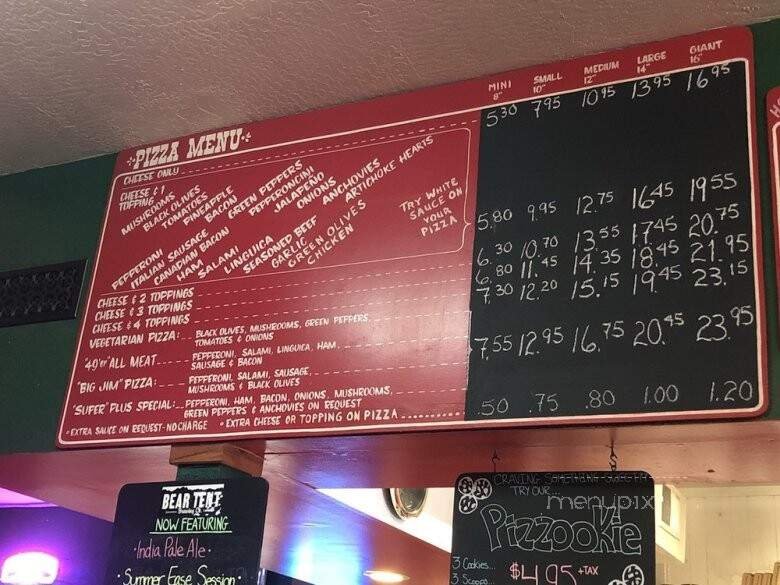 PIZZA MENU
MINI SMALL MEDIUM LARGE GIANT
8" 10" 12" 14" 16"
CHEESE ONLY 5.30 7.95 10.95 13.95 16.95
CHEESE & 1
TOPPING
MUSHROOMS
BLACK OLIVES
TOMATOES
PINEAPPLE
BACON
GREEN PEPPERS
PEPPERONCINI
JALAPEÑO
ONIONS
ANCHOVIES
ARTICHOKE HEARTS
PEPPERONI
ITALIAN SAUSAGE
CANADIAN BACON
HAM
SALAMI
LINGUICA
SEASONED BEEF
GARLIC
GREEN OLIVES
CHICKEN
TRY WHITE
SAUCE ON
YOUR
PIZZA
5.80 9.95 12.75 16.45 19.55
CHEESE & 2 TOPPINGS 6.30 10.70 13.55 17.45 20.75
CHEESE & 3 TOPPINGS 6.80 11.45 14.35 18.45 21.95
CHEESE & 4 TOPPINGS 7.30 12.20 15.15 19.45 23.15
VEGETARIAN PIZZA: BLACK OLIVES, MUSHROOMS, GREEN PEPPERS,
TOMATOES & ONIONS
"49'er" ALL MEAT PEPPERONI, SALAMI, LINGUICA, HAM,
SAUSAGE & BACON
7.55 12.95 16.75 20.45 23.95
"BIG JIM" PIZZA: PEPPERONI, SALAMI, SAUSAGE,
MUSHROOMS & BLACK OLIVES
"SUPER" PLUS SPECIAL: PEPPERONI, HAM, BACON, ONIONS, MUSHROOMS,
GREEN PEPPERS & ANCHOVIES ON REQUEST
• EXTRA SAUCE ON REQUEST - NO CHARGE • EXTRA CHEESE OR TOPPING ON PIZZA .50 .75 .80 1.00 1.20
BEAR TENT
NOW FEATURING
• India Pale Ale •
• Summer Ease Session •
CRAVING SOMETHING SWEET?
TRY OUR...
menupix
Pizzookie
3 Cookies...
3 Scoops...
$4.95 +TAX